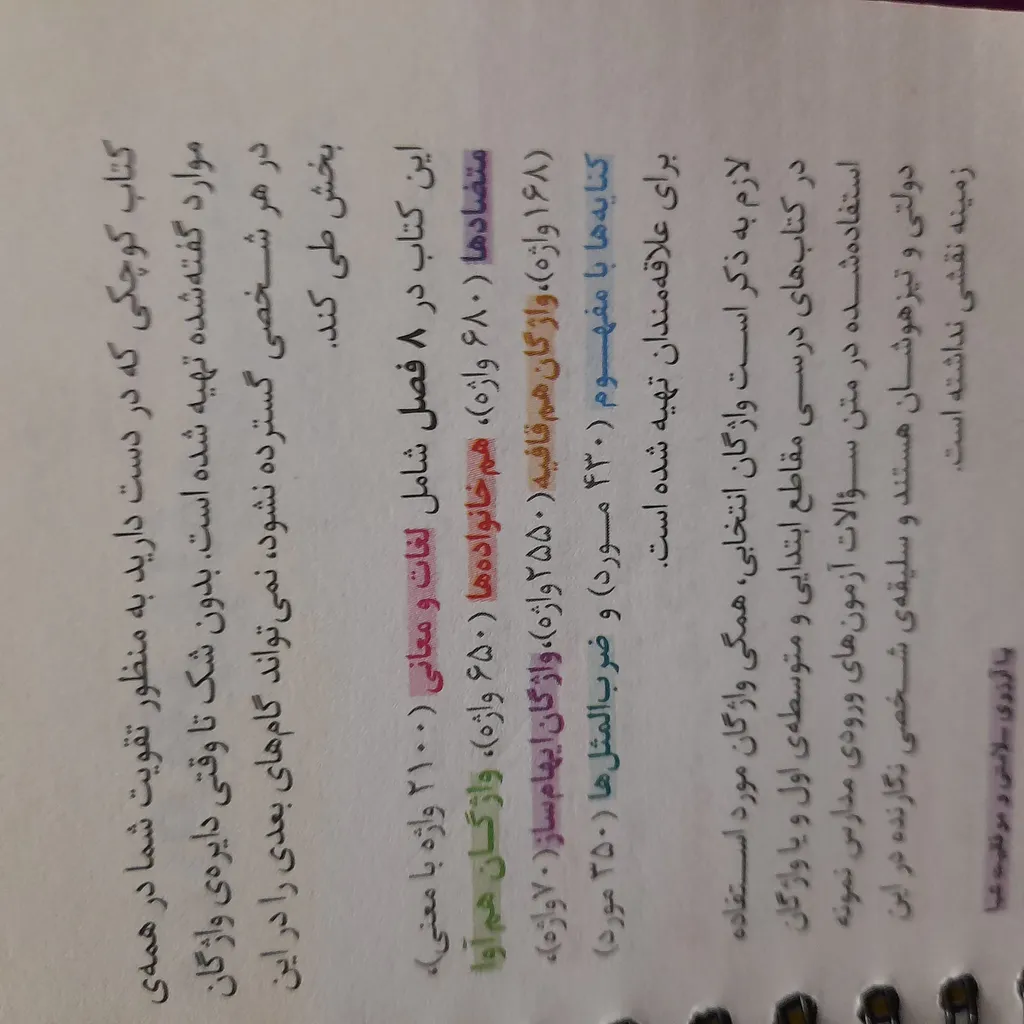 کتاب کوچکی که در دست دارید به منظور تقویت شما در همه‌ی
موارد گفته‌شده تهیه شده است. بدون شک تا وقتی دایره‌ی واژگان
در هر شخصی گسترده نشود، نمی‌تواند گام‌های بعدی را در این
بخش طی کند.
این کتاب در ۸ فصل شامل لغات و معانی (۲۱۰۰ واژه با معنی)،
متضادها (۶۸۰ واژه)، هم‌خانواده‌ها (۶۵۰ واژه)، واژگان هم‌آوا
(۱۶۸ واژه)، واژگان هم‌قافیه (۲۵۵۰ واژه)، واژگان ایهام‌ساز (۷۰ واژه)،
کنایه‌ها با مفهوم (۴۳۰ مورد) و ضرب‌المثل‌ها (۳۵۰ مورد)
برای علاقه‌مندان تهیه شده است.
لازم به ذکر است واژگان انتخابی، همگی واژگان مورد استفاده
در کتاب‌های درسی مقاطع ابتدایی و متوسطه‌ی اول و یا واژگان
استفاده‌شده در متن سؤالات آزمون‌های ورودی مدارس نمونه
دولتی و تیزهوشان هستند و سلیقه‌ی شخصی نگارنده در این
زمینه نقشی نداشته است.
با آرزوی سلامتی و موفقیت شما